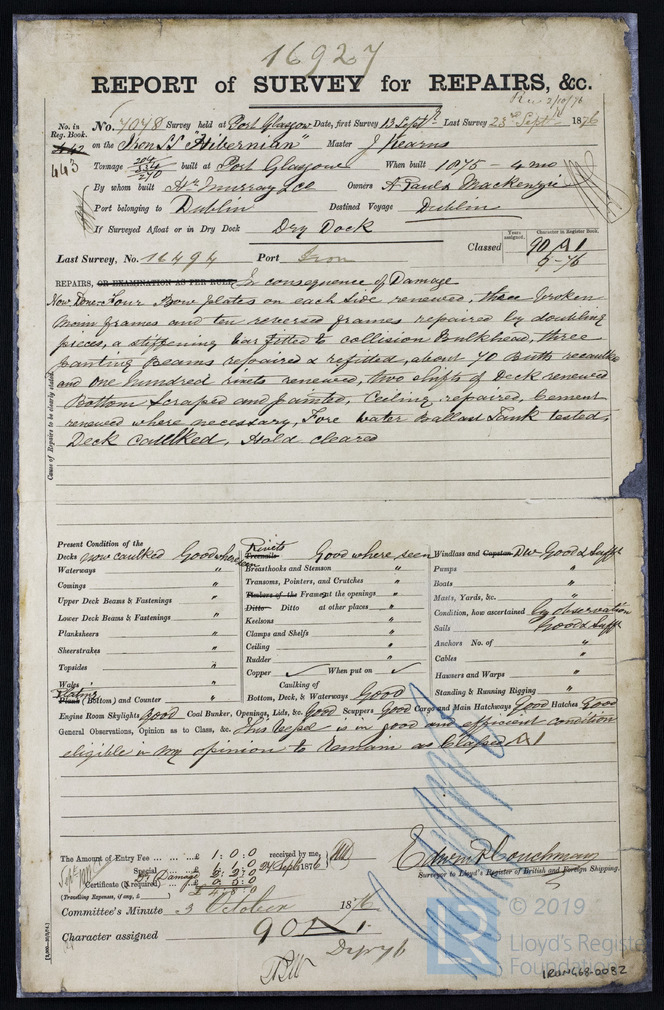 16927
REPORT of SURVEY for REPAIRS, &c.
Rec 2/10/76
No. in Reg. Book.
No. 7078 Survey held at Port Glasgow Date, first Survey 13 Septr Last Survey 23rd Septr 1876
442
443
on the Iron SS "Hibernian" Master J Kearns
Tonnage 204 270 built at Port Glasgow When built 1875 - 4 mo
By whom built Murray & Co Owners A Paul & Mackenzie
Port belonging to Dublin Destined Voyage Dublin
If Surveyed Afloat or in Dry Dock Dry Dock
Years assigned. Character in Register Book.
Classed 90 A 1
5-76
Last Survey, No. 16494 Port Iron
REPAIRS, OR EXAMINATION AS PER RULE, In consequence of Damage
Now Done Four Bow plates on each side renewed, three broken
Main frames and ten reversed frames repaired by doubling
pieces, a stiffening bar fitted to collision Bulkhead, three
panting Beams repaired & refitted, about 70 Butts recaulked
and one hundred rivets renewed, two shifts of Deck renewed
Bottom Scraped and painted, Ceiling repaired, Cement
renewed where necessary, Fore Water Ballast Tank tested,
Deck caulked, Hold cleared
Cause of Repairs to be clearly stated.
Present Condition of the
Decks now caulked Good where seen
Waterways "
Comings "
Upper Deck Beams & Fastenings "
Lower Deck Beams & Fastenings "
Planksheers "
Sheerstrakes "
Topsides "
Wales "
Plating Plank (Bottom) and Counter "
Rivets Treenails Good where seen
Breasthooks and Stemson "
Transoms, Pointers, and Crutches "
Timbers of the Frame at the openings "
Ditto Ditto at other places "
Keelsons "
Clamps and Shelfs "
Ceiling "
Rudder "
Copper ✓ When put on ✓
Caulking of
Bottom, Deck, & Waterways Good
Windlass and Capstan Good & Sufft
Pumps "
Boats "
Masts, Yards, &c. "
Condition, how ascertained by observation
Sails Good & Sufft
Anchors No. of "
Cables "
Hawsers and Warps "
Standing & Running Rigging "
Engine Room Skylights Good Coal Bunker, Openings, Lids, &c. Good Scuppers Good Cargo and Main Hatchways Good Hatches Good
General Observations, Opinion as to Class, &c. This Vessel is in good and efficient condition
eligible in my opinion to Remain as Classed A 1
The Amount of Entry Fee ... £ 1 : 0 : 0 received by me,
Special ... £
Damage
24 Sept 1876
Certificate (if required) ... £
(Travelling Expenses, if any, £ )
Edwin P Couchman
Surveyor to Lloyd's Register of British and Foreign Shipping.
Committee's Minute 3 October 1876
Character assigned 90 A 1.
© 2019
LR
Lloyd's Register
Foundation
IRON468-0082